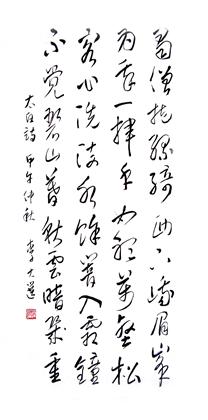 蜀僧抱綠綺西下峨眉峯
為我一揮手如聽萬壑松
客心洗流水餘響入霜鐘
不覺碧山暮秋雲暗幾重
太白詩 甲午仲秋 李大